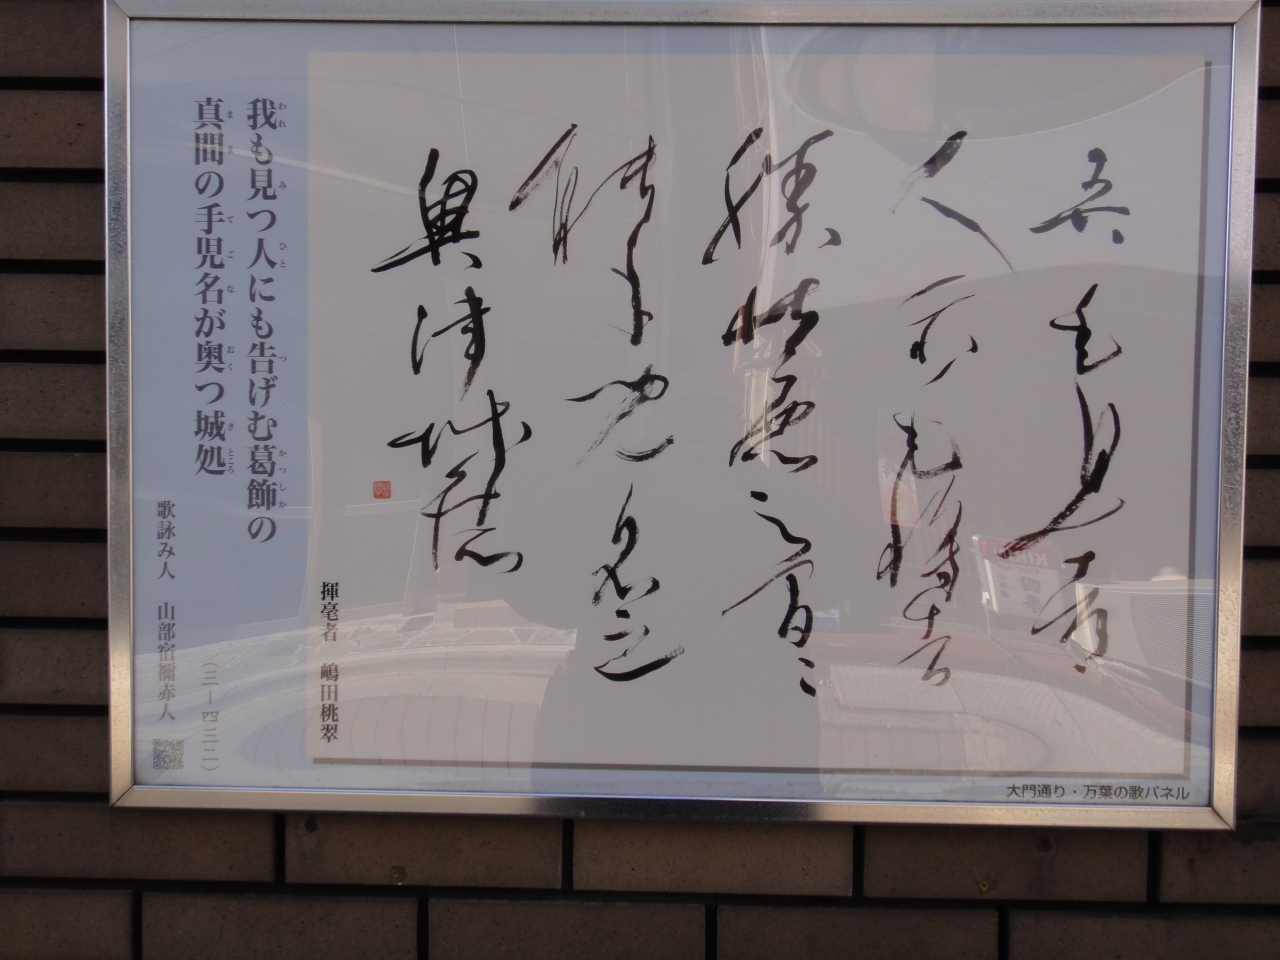 吾毛見都
人尓毛将告
勝牡鹿之間々
能手児名之
奥津城處
揮毫者　嶋田桃翠
我も見つ人にも告げむ葛飾の
真間の手児名が奥つ城処
(三―四三二)
歌詠み人　山部宿禰赤人
大門通り・万葉の歌パネル